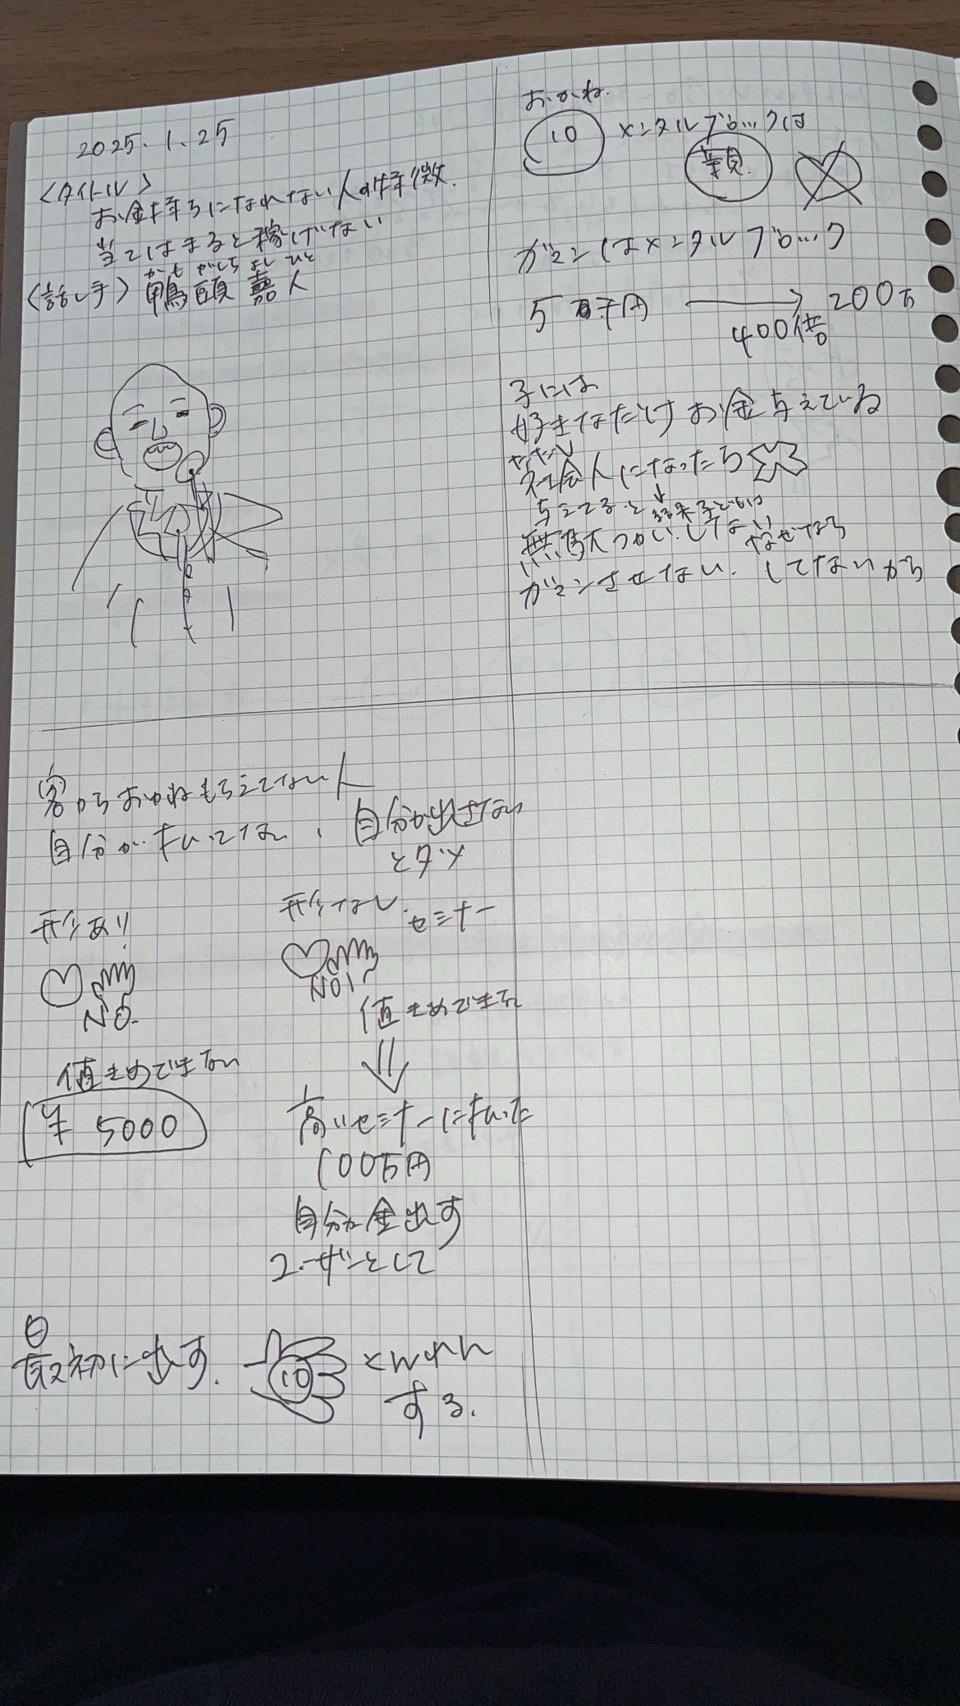 2025.1.25
<タイトル>
お金持ちになれない人の特徴.
当てはまると稼げない
かも がしら よし ひと
<話し手> 鴨頭 嘉人
おかね.
10 メンタルブロックは
親
ガマンはメンタルブロック
5千円 → 200万
400倍
子には
好きなだけお金与えている
ただし
社会人になったら
与えてると 結果子どもは
無駄づかいしない なぜなら
ガマンさせない. してないから
客からおかねもらえてない人
自分が払ってない、自分が出さない
とダメ
形あり
NO.
値きめできない
¥ 5000
形なし. セミナー
NO!
値きめできた
高いセミナーに払った
100万円
自分が金出す
ユーザーとして
最初に出す. 10 くんれん
する.